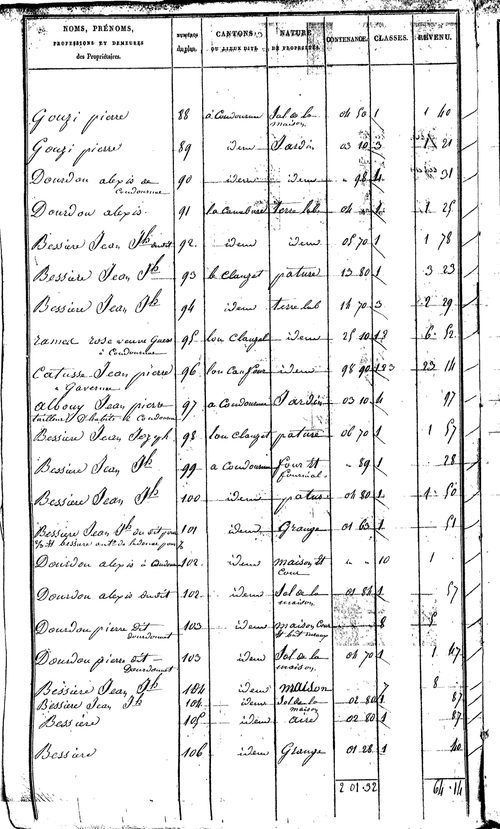 NOMS, PRÉNOMS, PROFESSIONS ET DEMEURES des Propriétaires. NUMÉROS du plan. CANTONS OU LIEUX DITS NATURE DE PROPRIÉTÉS. CONTENANCE. CLASSES. REVENU.
Gouzi pierre 88 à Coudournac Sol de la maison 04 50 1 1 40
Gouzi pierre 89 idem Jardin 03 10 3 1 21
Dourdou alexis de Coudournac 90 idem idem " 98 4 31
Dourdou alexis 91 idem terre lab 04 1 1 25
Bessière Jean Jh 92 idem idem 05 70 1 1 78
Bessière Jean Jh 93 le Clauzet pature 13 80 1 3 23
Bessière Jean Jh 94 idem terre lab 14 70 3 2 29
ramed rose veuve à Coudournac 95 lou Clauzet idem 25 10 6 52
Catusse Jean pierre à Gavernac 96 idem 98 90 123 23 14
Albouy Jean pierre 97 a Coudournac Jardin 03 10 4 97
Bessière Jean Jozeph 98 lou Clauzet pature 06 70 1 1 57
Bessière Jean Jh 99 a Coudournac four et fournial " 89 1 28
Bessière Jean Jh 100 idem pature 04 80 1 1 50
Bessière Jean Jh 101 idem Grange 01 63 1 51
Dourdou alexis à Coudournac 102 idem maison et Cour " " 10 1
Dourdou alexis dudit 102 idem Sol de la maison 01 84 1 57
Dourdou pierre dit dourdounet 103 idem maison Cour 8 5
Dourdou pierre dit Dourdounet 103 idem Sol de la maison 04 70 1 1 47
Bessière Jean Jh 104 idem maison 7 8
Bessière Jean Jh 104 idem Sol de la maison 02 80 1 87
Bessière 105 idem aire 02 80 1 87
Bessière 106 idem Grange 01 28 1 40
2 01 32 64 14